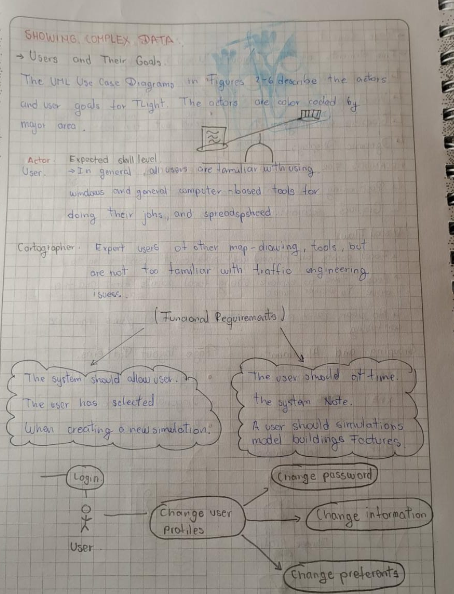 SHOWING COMPLEX DATA
→ Users and Their Goals.
The UML Use Case Diagrams in Figures 2-6 describe the actors
and user goals for TLight. The actors are color coded by
major area.
Actor Expected skill level
User. → In general, all users are familiar with using
windows and general computer-based tools for
doing their jobs, and spreadspsheed
Cartographer. Expert users of other map-drowing, tools, but
are not too familiar with traffic engineering
issues.
(Funcional Requirements)
The system should allow user.
The user has selected
When creating a new simulation.
The user should at time.
the system Note.
A user should simulations
model buildings Factures
Login
User
Change user
profiles
Change password
Change information
Change preferents